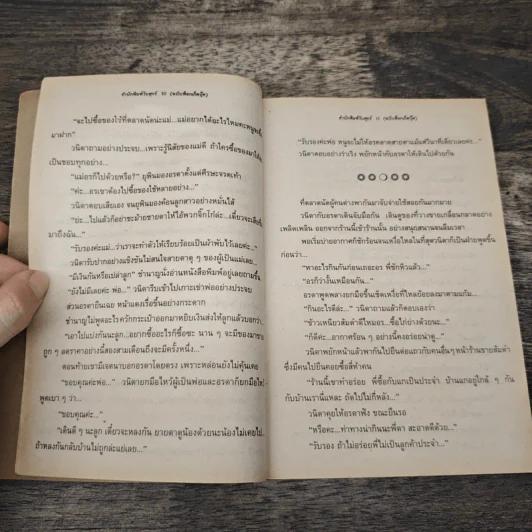 สำนักพิมพ์วันสุขร์ 10 (ฉบับพ็อกเก็ตบุ๊ค)
"จะไปซื้อของไร้ที่ตลาดนัดน่ะแม่...แม่อยากได้อะไรไหมคะ
มาฝาก"
วนิดาถามอย่างประจบ...เพราะรู้นิสัยของแม่ดี ถ้าใครซื้อของมาให้
เป็นชอบทุกอย่าง...
"แม่อรก็ไปด้วยหรือ?" ยุพินมองอรดาตั้งแต่ศีรษะจรดเท้า
"ค่ะ...อรเขาต้องไปซื้อของใช้หลายอย่าง..."
วนิดาตอบเสียเอง จนยุพินมองค้อนลูกสาวอย่างหมั่นไส้
"ย่ะ...ไปแล้วก็อย่าชะม้ายชายตาให้ไอ้พวกจิ๊กโก๋ล่ะ...เดี๋ยวจะเสีย
มาถึงฉัน..."
"รับรองค่ะแม่...ว่าเราจะทำตัวให้เรียบร้อยเป็นผ้าพับไว้เลยค่ะ..."
วนิดารับปากอย่างแข็งขันไม่สนใจสายตาดุ ๆ ของผู้เป็นแม่เลย...
"มีเงินกันหรือเปล่าลูก" ชำนาญนั่งอ่านหนังสือพิมพ์อยู่เลยถามขึ้น
"ยังไม่มีเลยค่ะ พ่อ..." วนิดารีบเข้าไปเกาะเข่าพ่ออย่างประจบ
ส่วนอรดายืนเฉย หน้าแดงเรื่อขึ้นอย่างกระดาก
ชำนาญไม่พูดอะไร ควักกระเป๋าออกมาหยิบเงินส่งให้ลูกแล้วบอกว่า...
"เอาไปแบ่งกันนะลูก...อยากซื้ออะไรก็ซื้อซะ นาน ๆ จะมีของมาขาย
ถูก ๆ ลดราคาอย่างนี้สองสามเดือนถึงจะมีครั้งหนึ่ง..."
ตอนท้ายเขามีเจตนาบอกอรดาโดยตรง เพราะหล่อนยังไม่คุ้นเคย
"ขอบคุณค่ะพ่อ..." วนิดายกมือไหว้ผู้เป็นพ่อและอรดาก็ยกมือไหว้
พูดเบา ๆ ว่า...
"ขอบคุณค่ะ..."
"เดินดี ๆ นะลูก เดี๋ยวจะหลงกัน ยายดาดูน้องด้วยนะน้องไม่เคยไป
ถ้าหลงกลับบ้านไม่ถูกล่ะแย่เลย..."
สำนักพิมพ์วันสุขร์ 11 (ฉบับพ็อกเก็ตบุ๊ค)
"รับรองค่ะพ่อ หนูจะไม่ให้อรคลาดสายตาแม้แต่วินาทีเดียวเลยค่ะ..."
วนิดาตอบอย่างร่าเริง พยักหน้ากับอรดาให้เดินไปด้วยกัน
ที่ตลาดนัดผู้คนต่างพากันมาจับจ่ายใช้สอยกันมากมาย
วนิดากับอรดาเดินจับมือกัน เดินดูของที่วางขายเกลื่อนกลาดอย่าง
เพลิดเพลิน ออกจากร้านนี้เข้าร้านนั้น อย่างสนุกสนานจนลืมเวลา
พอเริ่มบ่ายอากาศก็ชักร้อนจนเหงื่อไหลในที่สุดวนิดาก็เป็นฝ่ายพูดขึ้น
ก่อนว่า...
"หาอะไรกินกันก่อนเถอะอร พี่ชักหิวแล้ว..."
"อรก็ว่างั้นเหมือนกัน..."
อรดาพูดพลางยกมือขึ้นเช็ดเหงื่อที่ไหลย้อยลงมาตามแก้ม...
"กินอะไรดีล่ะ..." วนิดาถามแล้วก็ตอบเองว่า
"ข้าวเหนียวส้มตำดีไหมอร...ซื้อไก่ย่างด้วยนะ..."
"ก็ดีค่ะ...อากาศร้อน ๆ อย่างนี้คงอร่อยน่าดู..."
วนิดาพยักหน้าแล้วพากันไปยืนต่อแถวกับคนอื่นๆ หน้าร้านขายส้มตำ
ซึ่งมีคนไปยืนคอยซื้อสี่ห้าคน
"ร้านนี้เขาทำอร่อย พี่ซื้อกับแกเป็นประจำ บ้านแกอยู่ใกล้ ๆ กัน
กับบ้านเรานี่แหละ ถัดไปไม่กี่หลัง..."
วนิดาคุยให้อรดาฟัง ขณะยืนรอ
"หรือคะ...ท่าทางน่ากินนะพี่ดา สะอาดดีด้วย..."
"รับรอง ถ้าไม่อร่อยพี่ไม่เป็นลูกค้าประจำ..."